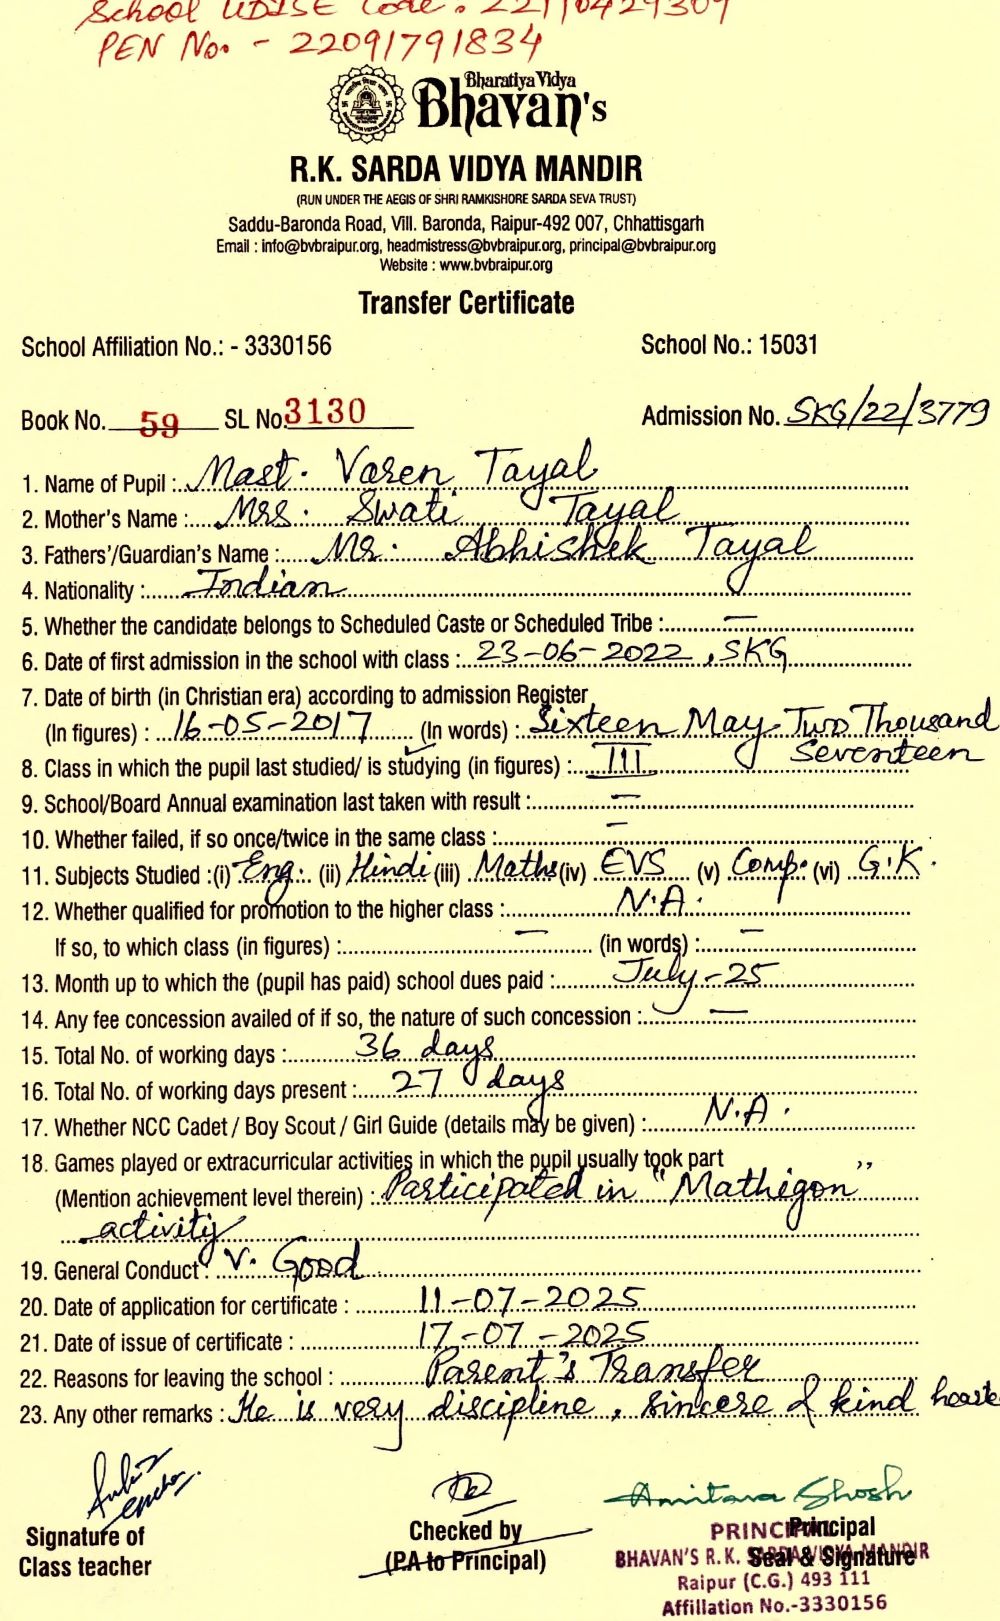 School UDISE Code. 22110429309
PEN No. - 22091791834
Bharatiya Vidya
Bhavan's
R.K. SARDA VIDYA MANDIR
(RUN UNDER THE AEGIS OF SHRI RAMKISHORE SARDA SEVA TRUST)
Saddu-Baronda Road, Vill. Baronda, Raipur-492 007, Chhattisgarh
Email : info@bvbraipur.org, headmistress@bvbraipur.org, principal@bvbraipur.org
Website : www.bvbraipur.org
Transfer Certificate
School Affiliation No.: - 3330156 School No.: 15031
Book No. 59 SL No. 3130 Admission No. SKG/22/3779
1. Name of Pupil : Mast. Varen Tayal
2. Mother's Name : Mrs. Swati Tayal
3. Fathers'/Guardian's Name : Mr. Abhishek Tayal
4. Nationality : Indian
5. Whether the candidate belongs to Scheduled Caste or Scheduled Tribe : —
6. Date of first admission in the school with class : 23-06-2022, SKG
7. Date of birth (in Christian era) according to admission Register
(In figures) : 16-05-2017 (In words) : Sixteen May Two Thousand
Seventeen
8. Class in which the pupil last studied/ is studying (in figures) : III
9. School/Board Annual examination last taken with result : —
10. Whether failed, if so once/twice in the same class : —
11. Subjects Studied :(i) Eng. (ii) Hindi (iii) Maths (iv) EVS (v) Comp. (vi) G.K.
12. Whether qualified for promotion to the higher class : N.A.
If so, to which class (in figures) : — (in words) : —
13. Month up to which the (pupil has paid) school dues paid : July-25
14. Any fee concession availed of if so, the nature of such concession : —
15. Total No. of working days : 36 days
16. Total No. of working days present : 27 days
17. Whether NCC Cadet / Boy Scout / Girl Guide (details may be given) : N.A.
18. Games played or extracurricular activities in which the pupil usually took part
(Mention achievement level therein) : Participated in "Mathigon"
activity
19. General Conduct : V. Good
20. Date of application for certificate : 11-07-2025
21. Date of issue of certificate : 17-07-2025
22. Reasons for leaving the school : Parent's Transfer
23. Any other remarks : He is very discipline, sincere & kind hearte
Signature of
Class teacher
Checked by
(P.A to Principal)
Principal
Seal & Signature
PRINCIPAL
BHAVAN'S R. K. SARDA VIDYA MANDIR
Raipur (C.G.) 493 111
Affillation No.-3330156